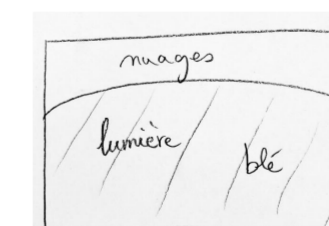 nuages
lumière
blé